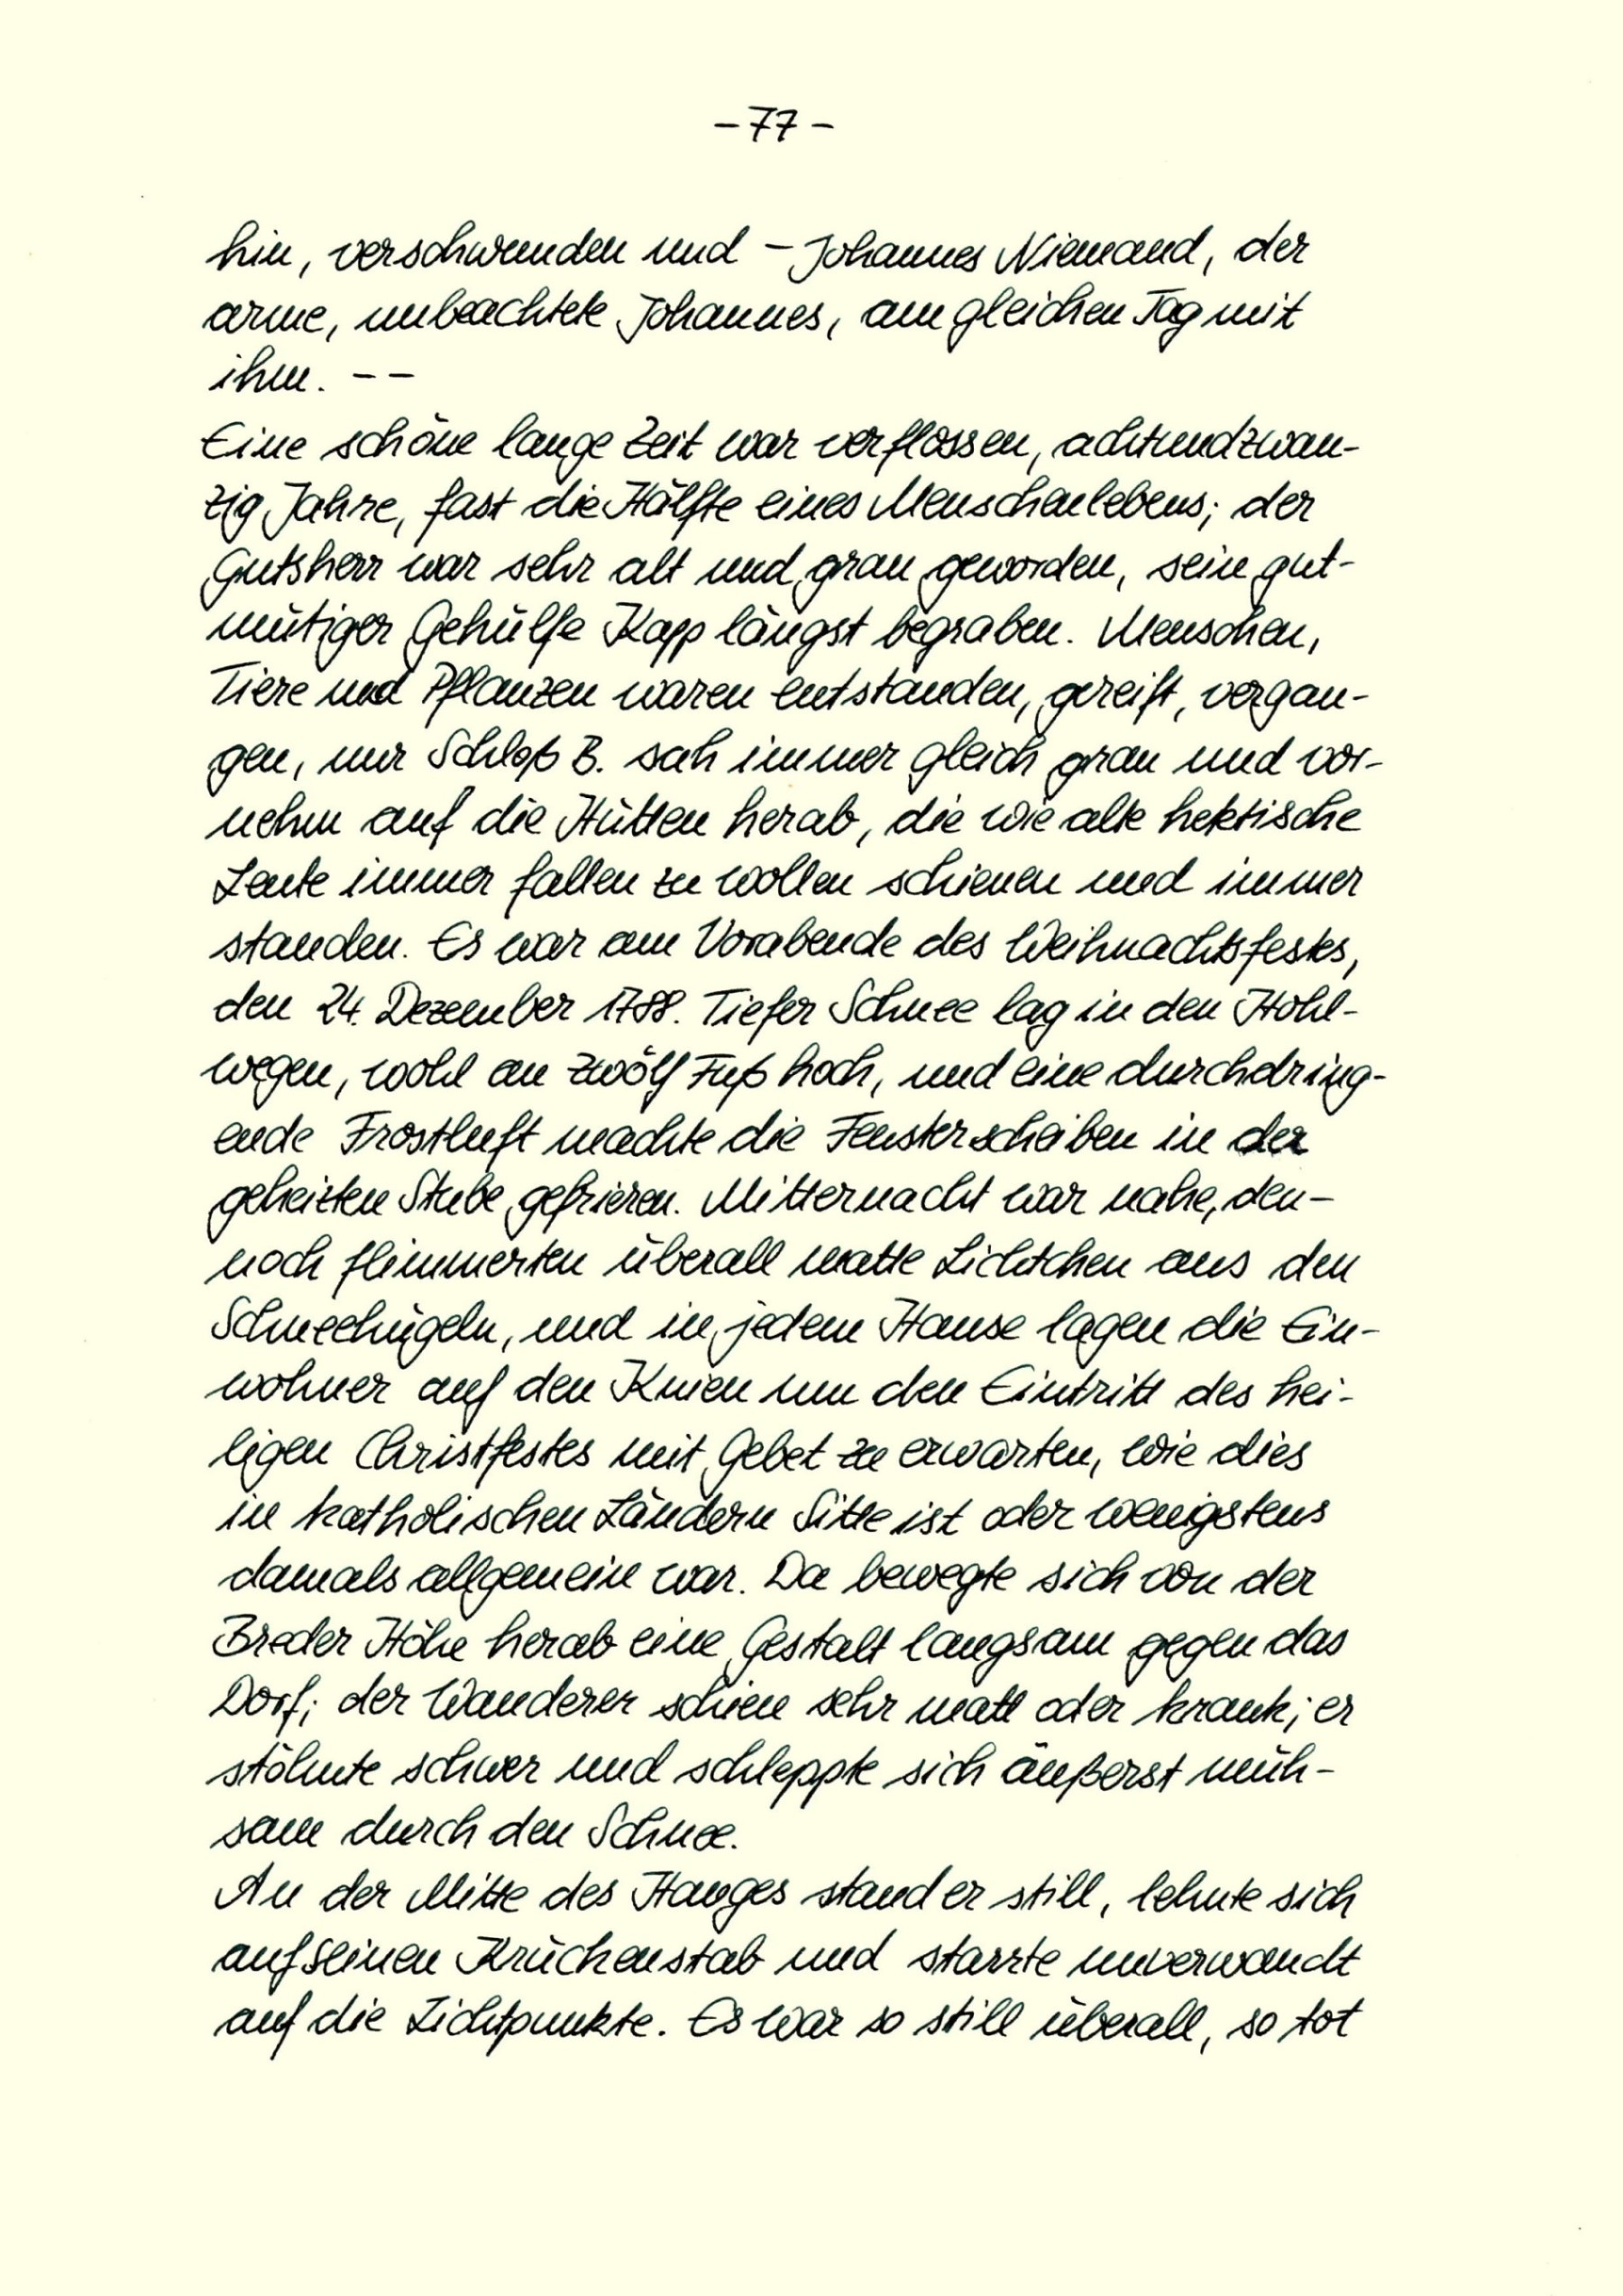 - 77 -
hin, verschwunden und - Johannes Niemand, der
arme, unbeachtete Johannes, am gleichen Tag mit
ihm. - -
Eine schöne lange Zeit war verflossen, achtundzwan-
zig Jahre, fast die Hälfte eines Menschenlebens; der
Gutsherr war sehr alt und grau geworden, sein gut-
mütiger Gehülfe Kapp längst begraben. Menschen,
Tiere und Pflanzen waren entstanden, gereift, vergan-
gen, nur Schloß B. sah immer gleich grau und vor-
nehm auf die Hütten herab, die wie alte hektische
Leute immer fallen zu wollen schienen und immer
standen. Es war am Vorabende des Weihnachtsfestes,
den 24. Dezember 1788. Tiefer Schnee lag in den Hohl-
wegen, wohl an zwölf Fuß hoch, und eine durchdring-
ende Frostluft machte die Fensterscheiben in der
geheizten Stube gefrieren. Mitternacht war nahe, den-
noch flimmerten überall matte Lichtchen aus den
Schneehügeln, und in jedem Hause lagen die Ein-
wohner auf den Knien um den Eintritt des hei-
ligen Christfestes mit Gebet zu erwarten, wie dies
in katholischen Ländern Sitte ist oder wenigstens
damals allgemein war. Da bewegte sich von der
Breder Höhe herab eine Gestalt langsam gegen das
Dorf; der Wanderer schien sehr matt oder krank; er
stöhnte schwer und schleppte sich äußerst müh-
sam durch den Schnee.
An der Mitte des Hanges stand er still, lehnte sich
auf seinen Krückenstab und starrte unverwandt
auf die Lichtpunkte. Es war so still überall, so tot